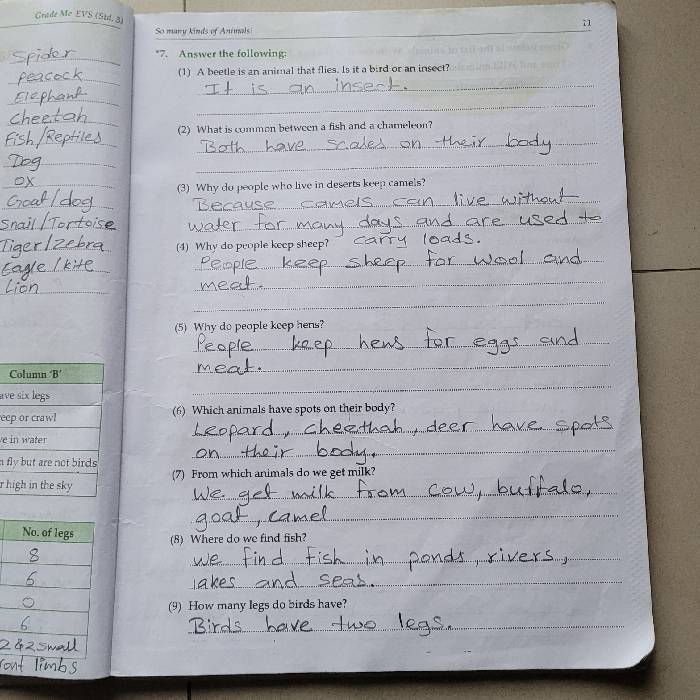 Grade Me EVS (Std. 3)
Spider
Peacock
Elephant
Cheetah
Fish/Reptiles
Dog
OX
Goat/dog
Snail/Tortoise
Tiger/zebra
Eagle/kite
Lion
Column 'B'
ave six legs
eep or crawl
ve in water
n fly but are not birds
r high in the sky
No. of legs
8
6
0
6
2 & 2 small
ront limbs
So many kinds of Animals!
11
*7. Answer the following:
(1) A beetle is an animal that flies. Is it a bird or an insect?
It is an insect.
(2) What is common between a fish and a chameleon?
Both have scales on their body
(3) Why do people who live in deserts keep camels?
Because camels can live without
water for many days and are used to
carry loads.
(4) Why do people keep sheep?
People keep sheep for wool and
meat.
(5) Why do people keep hens?
People keep hens for eggs and
meat.
(6) Which animals have spots on their body?
Leopard, cheethah, deer have spots
on their body.
(7) From which animals do we get milk?
We get milk from cow, buffalo,
goat, camel
(8) Where do we find fish?
We find fish in ponds, rivers,
lakes and seas.
(9) How many legs do birds have?
Birds have two legs.